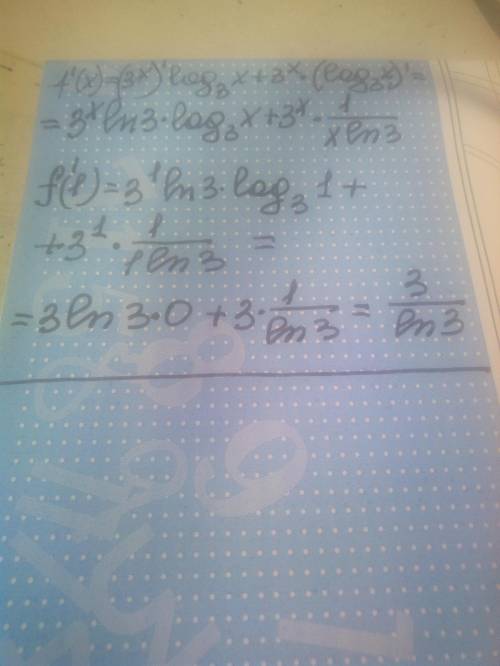 f'(x)=(3ˣ)'log₃x+3ˣ·(log₃x)'=
=3ˣln3·log₃x+3ˣ·1/(x ln3)
f'(1)=3¹ln3·log₃1+
+3¹·1/(1ln3) =
=3ln3·0+3·1/(ln3)=3/(ln3)